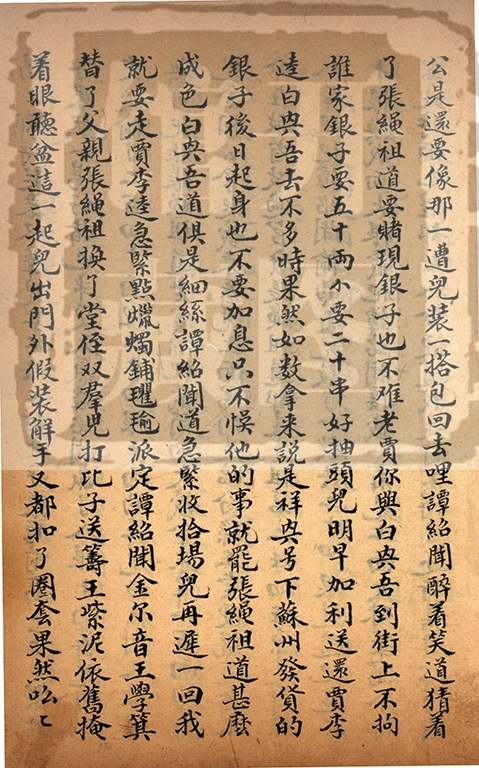 公是還要像那一遭兒装一搭包回去哩譚紹聞醉着笑道猜着
了張繩祖道要賭現銀子也不难老賈你與白與吾到街上不拘
誰家銀子要五十兩小要二十串好抽頭兒明早加利送還賈李
逵白與吾去不多時果然如数拿来說是祥與号下蘇州發貨的
銀子後日起身也不要加息只不悮他的事就罷張繩祖道甚麽
成色白與吾道俱是細絲譚紹聞道急緊收拾場兒再遲一回我
就要走賈李逵急緊點爉燭鋪氍毹派定譚紹聞金尔音王學箕
替了父親張繩祖換了堂侄双羣兒打比子送籌王紫泥依舊掩
着眼聽盆這一起兒出門外假装解手又都扣了圏套果然吆〻